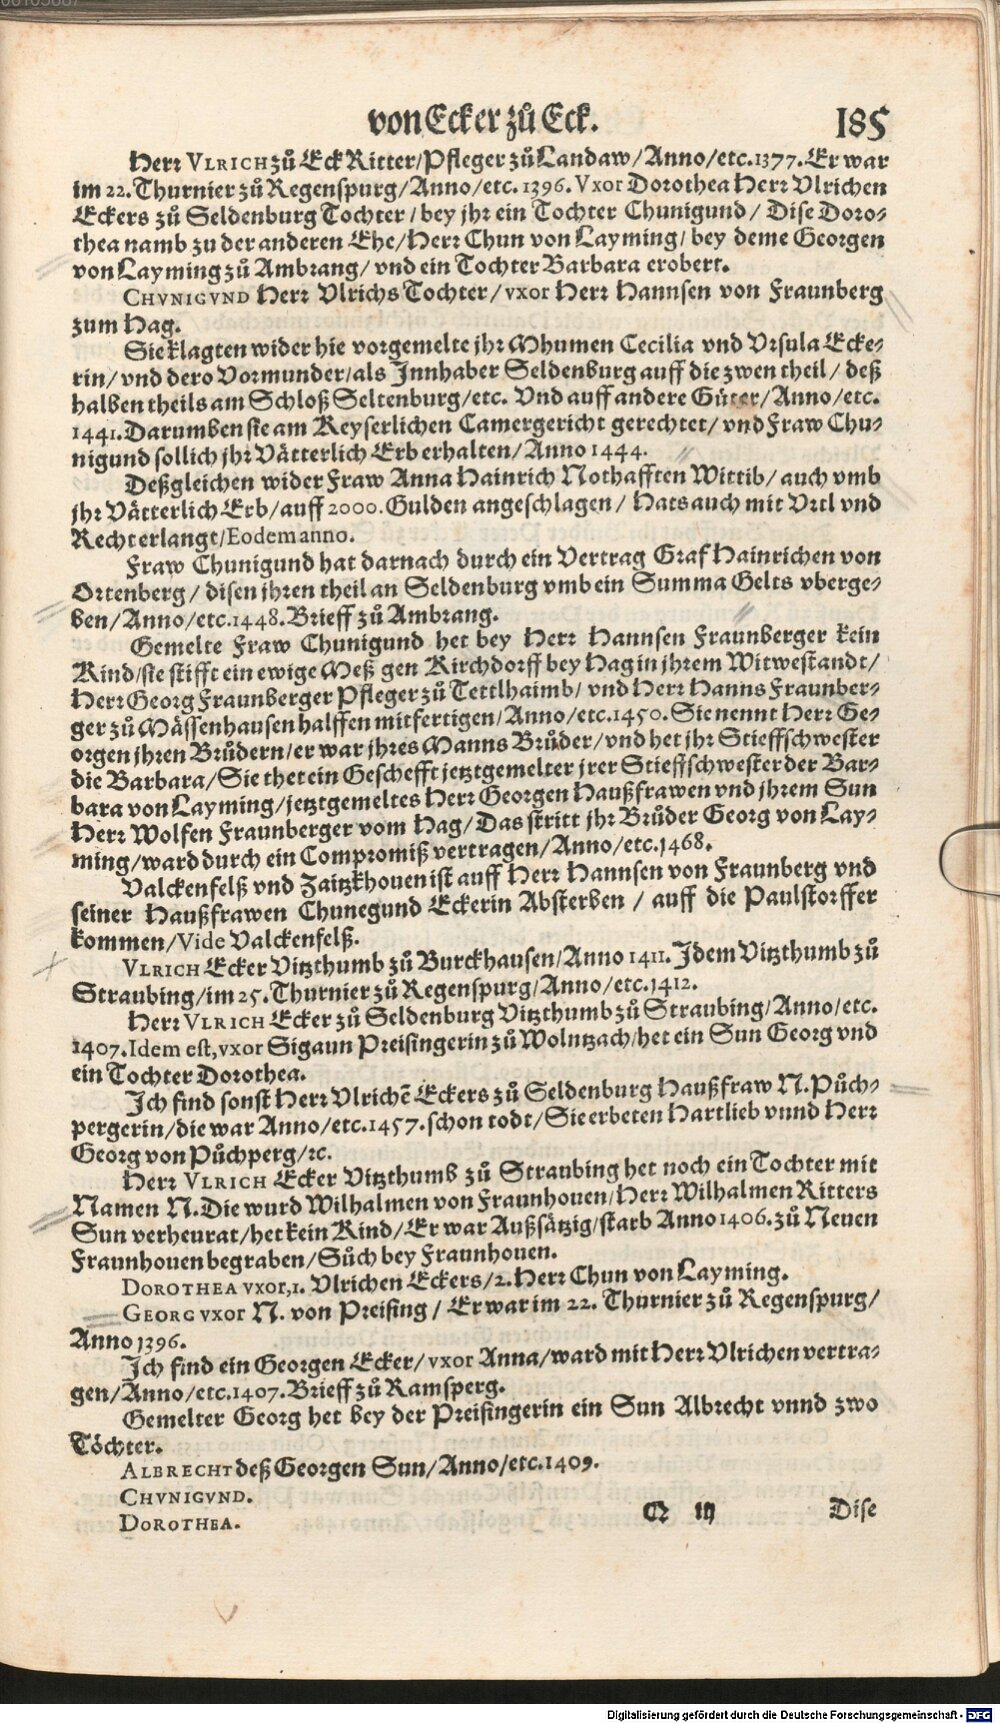 von Ecker zů Eck. 185
Herr VLRICH zů Eck Ritter/Pfleger zů Landaw/Anno/etc.1377. Er war
im 22. Thurnier zů Regenspurg/Anno/etc. 1396. Vxor Dorothea Herr Vlrichen
Eckers zů Seldenburg Tochter/bey jhr ein Tochter Chunigund/ Dise Doro-
thea namb zu der anderen Ehe/Herr Chun von Layming/ bey deme Georgen
von Layming zů Ambrang/ vnd ein Tochter Barbara erobert.
CHVNIGVND Herr Vlrichs Tochter/vxor Herr Hannsen von Fraunberg
zum Hag.
Sie klagten wider hie vorgemelte jhr Mhumen Cecilia vnd Vrsula Ecke-
rin/ vnd dero Vormunder/als Innhaber Seldenburg auff die zwen theil/ deß
halben theils am Schloß Seltenburg/etc. Vnd auff andere Güter/Anno/etc.
1441. Darumben sie am Keyserlichen Camergericht gerechtet/ vnd Fraw Chu-
nigund sollich jhr Vätterlich Erb erhalten/Anno 1444.
Deßgleichen wider Fraw Anna Hainrich Nothafften Wittib/ auch vmb
jhr Vätterlich Erb/auff 2000. Gulden angeschlagen/ Hats auch mit Vrtl vnd
Recht erlangt/Eodem anno.
Fraw Chunigund hat darnach durch ein Vertrag Graf Hainrichen von
Ortenberg/ disen jhren theil an Seldenburg vmb ein Summa Gelts vberge-
ben/Anno/etc.1448. Brieff zů Ambrang.
Gemelte Fraw Chunigund het bey Herr Hannsen Fraunberger kein
Kind/sie stifft ein ewige Meß gen Kirchdorff bey Hag in jhrem Witwestandt/
Herr Georg Fraunberger Pfleger zů Tettlhaimb/ vnd Herr Hanns Fraunber-
ger zů Mässenhausen halffen mitfertigen/Anno/etc.1450. Sie nennt Herr Ge-
orgen jhren Brůdern/er war jhres Manns Brůder/vnd het jhr Stieffschwester
die Barbara/Sie thet ein Geschefft jetztgemelter jrer Stieffschwester der Bar-
bara von Layming/jetztgemeltes Herr Georgen Haußfrawen vnd jhrem Sun
Herr Wolfen Fraunberger vom Hag/Das stritt jhr Brůder Georg von Lay-
ming/ward durch ein Compromiß vertragen/Anno/etc.1468.
Valckenfelß vnd Zaitzkhouen ist auff Herr Hannsen von Fraunberg vnd
seiner Haußfrawen Chunegund Eckerin Absterben/ auff die Paulstorffer
kommen/Vide Valckenfelß.
VLRICH Ecker Vitzthumb zů Burckhausen/Anno 1411. Idem Vitzthumb zů
Straubing/im 25. Thurnier zů Regenspurg/Anno/etc.1412.
Herr VLRICH Ecker zů Seldenburg Vitzthumb zů Straubing/Anno/etc.
1407. Idem est, vxor Sigaun Preisingerin zů Wolntzach/het ein Sun Georg vnd
ein Tochter Dorothea.
Ich find sonst Herr Vlrichẽ Eckers zů Seldenburg Haußfraw N. Půch-
pergerin/die war Anno/etc.1457. schon todt/Sie erbeten Hartlieb vnnd Herr
Georg von Půchperg/ꝛc.
Herr VLRICH Ecker Vitzthumb zů Straubing het noch ein Tochter mit
Namen N. Die wurd Wilhalmen von Fraunhouen/Herr Wilhalmen Ritters
Sun verheurat/het kein Kind/Er war Außsätzig/starb Anno 1406. zů Neuen
Fraunhouen begraben/Sůch bey Fraunhouen.
DOROTHEA vxor, 1. Vlrichen Eckers/2. Herr Chun von Layming.
GEORG vxor N. von Preising/ Er war im 22. Thurnier zů Regenspurg/
Anno 1396.
Ich find ein Georgen Ecker/vxor Anna/ward mit Herr Vlrichen vertra-
gen/Anno/etc.1407. Brieff zů Ramsperg.
Gemelter Georg het bey der Preisingerin ein Sun Albrecht vnnd zwo
Töchter.
ALBRECHT deß Georgen Sun/Anno/etc.1409.
CHVNIGVND.
DOROTHEA.
Q iij Dise
Digitalisierung gefördert durch die Deutsche Forschungsgemeinschaft - DFG